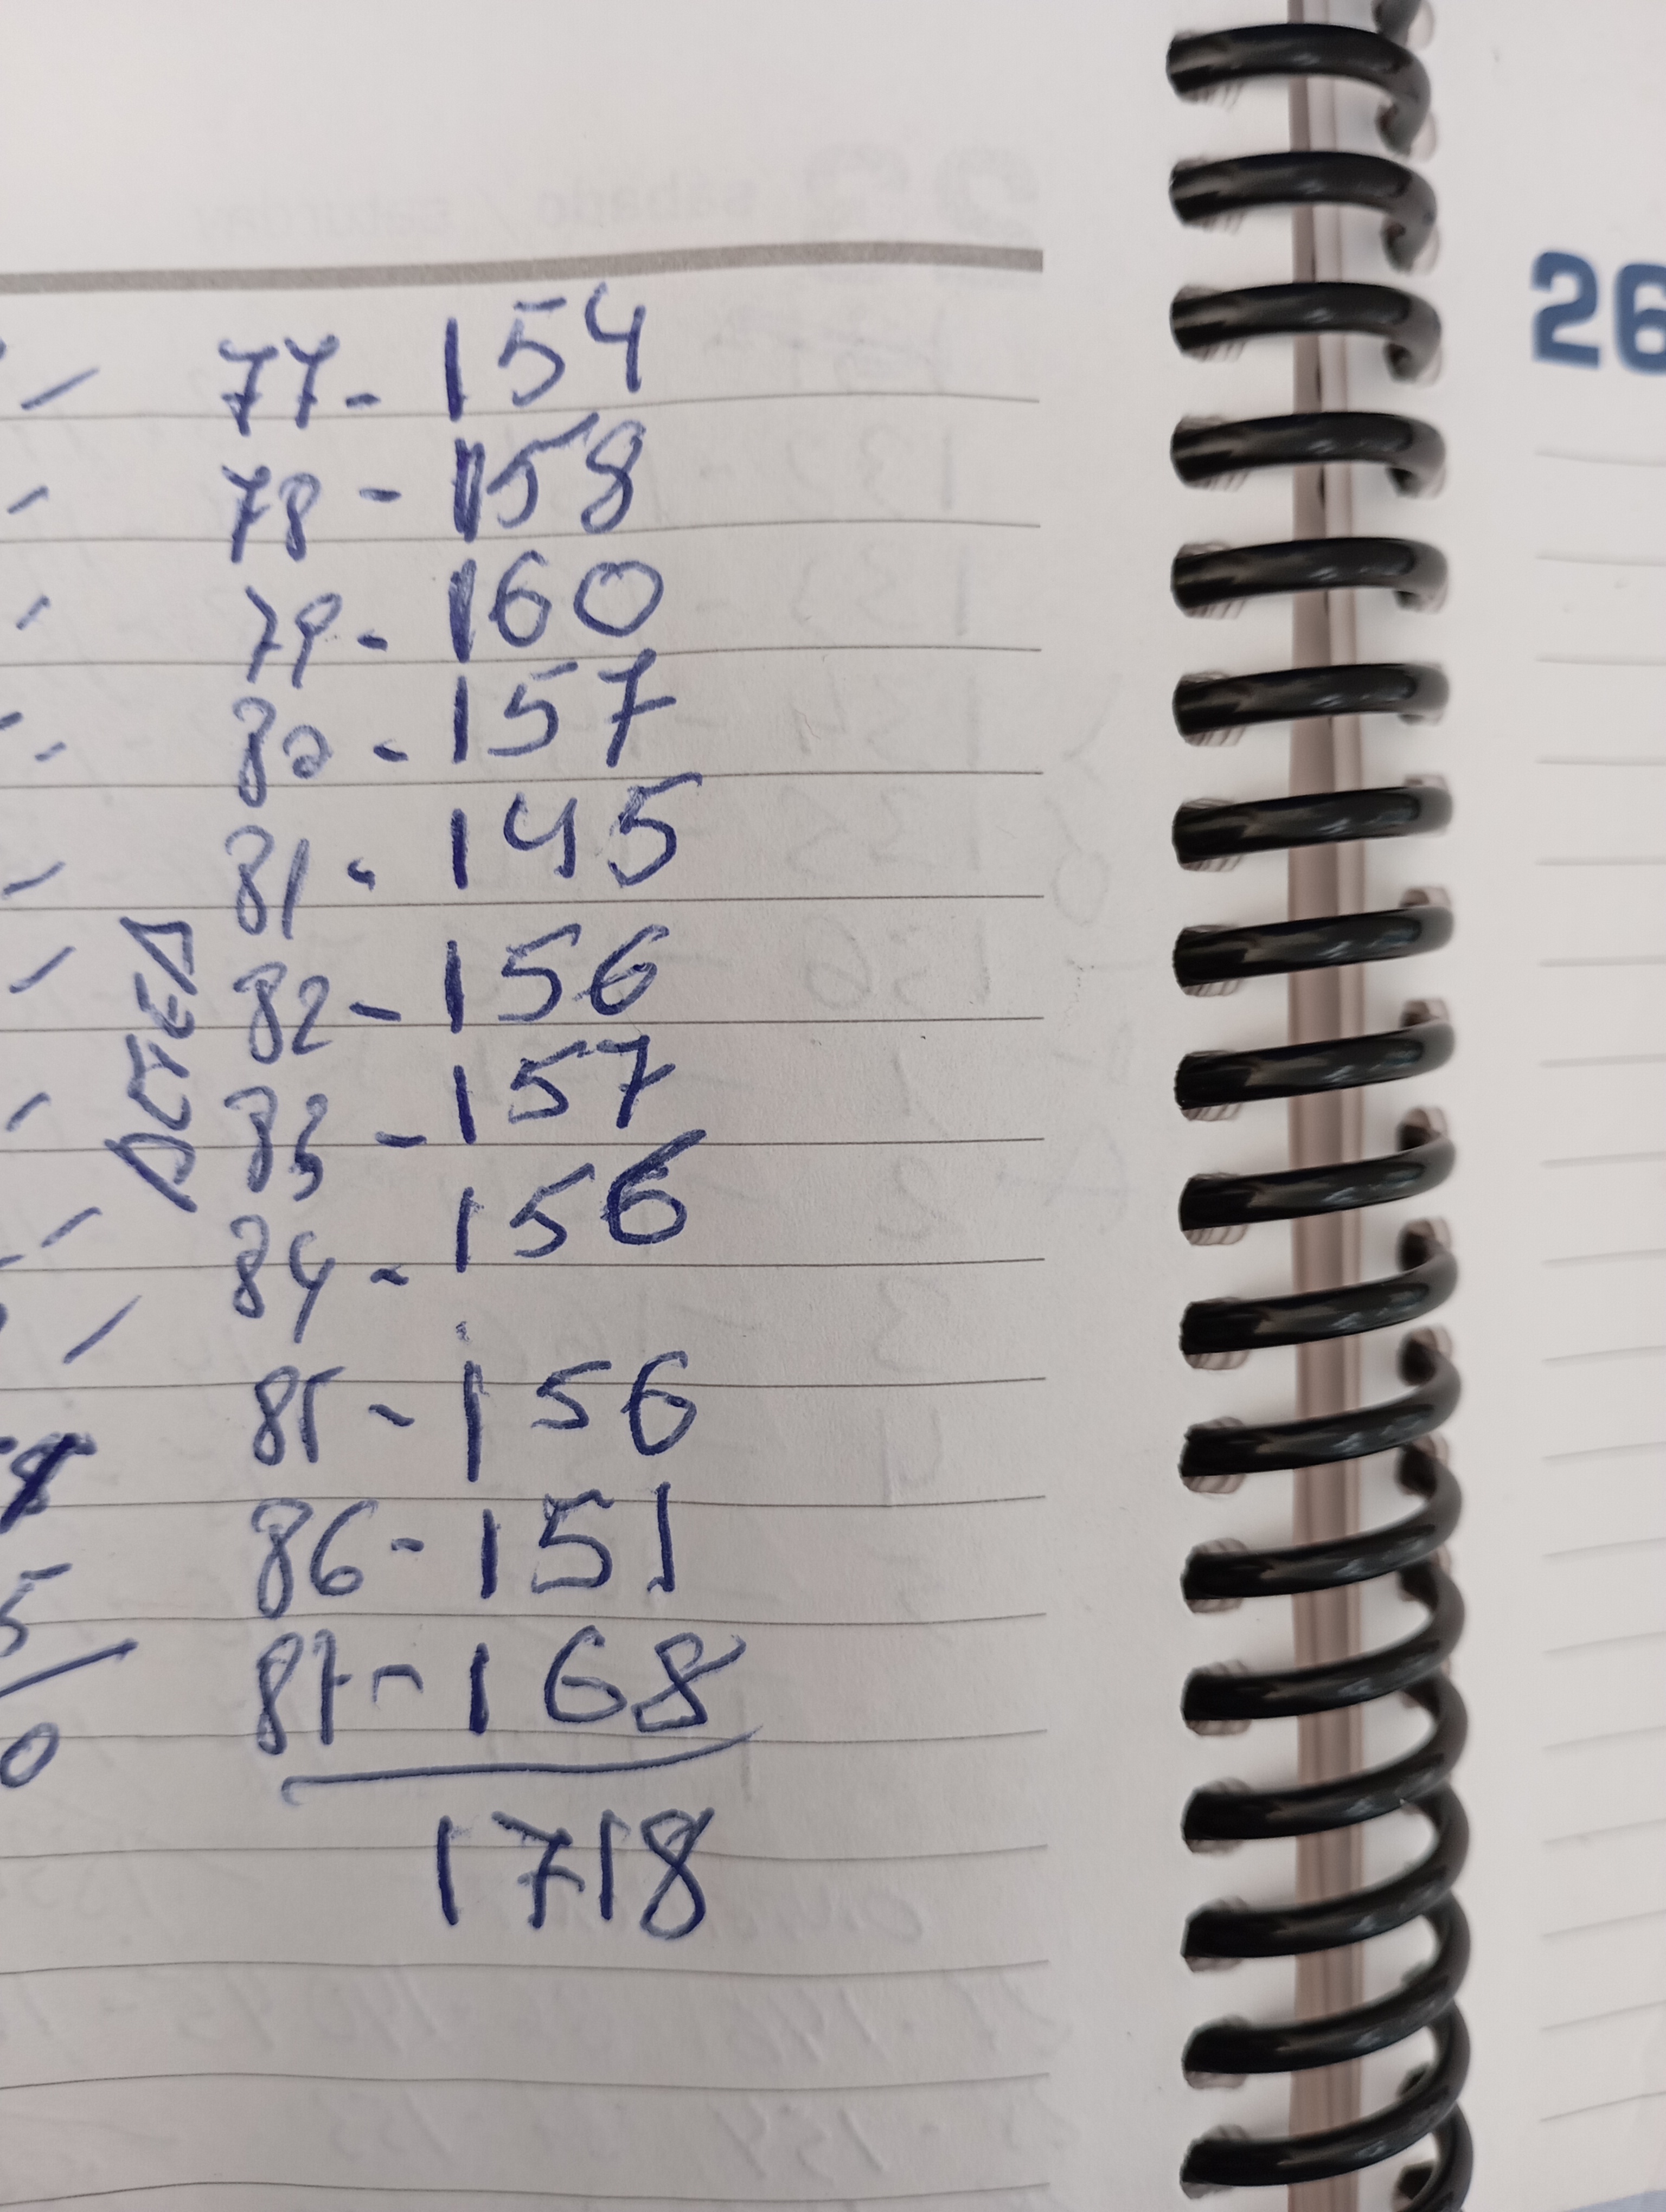 26
77- 154
78 - 158
79- 160
80 - 157
81 - 145
82 - 156
83 - 157
84 - 156
85 - 156
86 - 151
87 - 168
1718